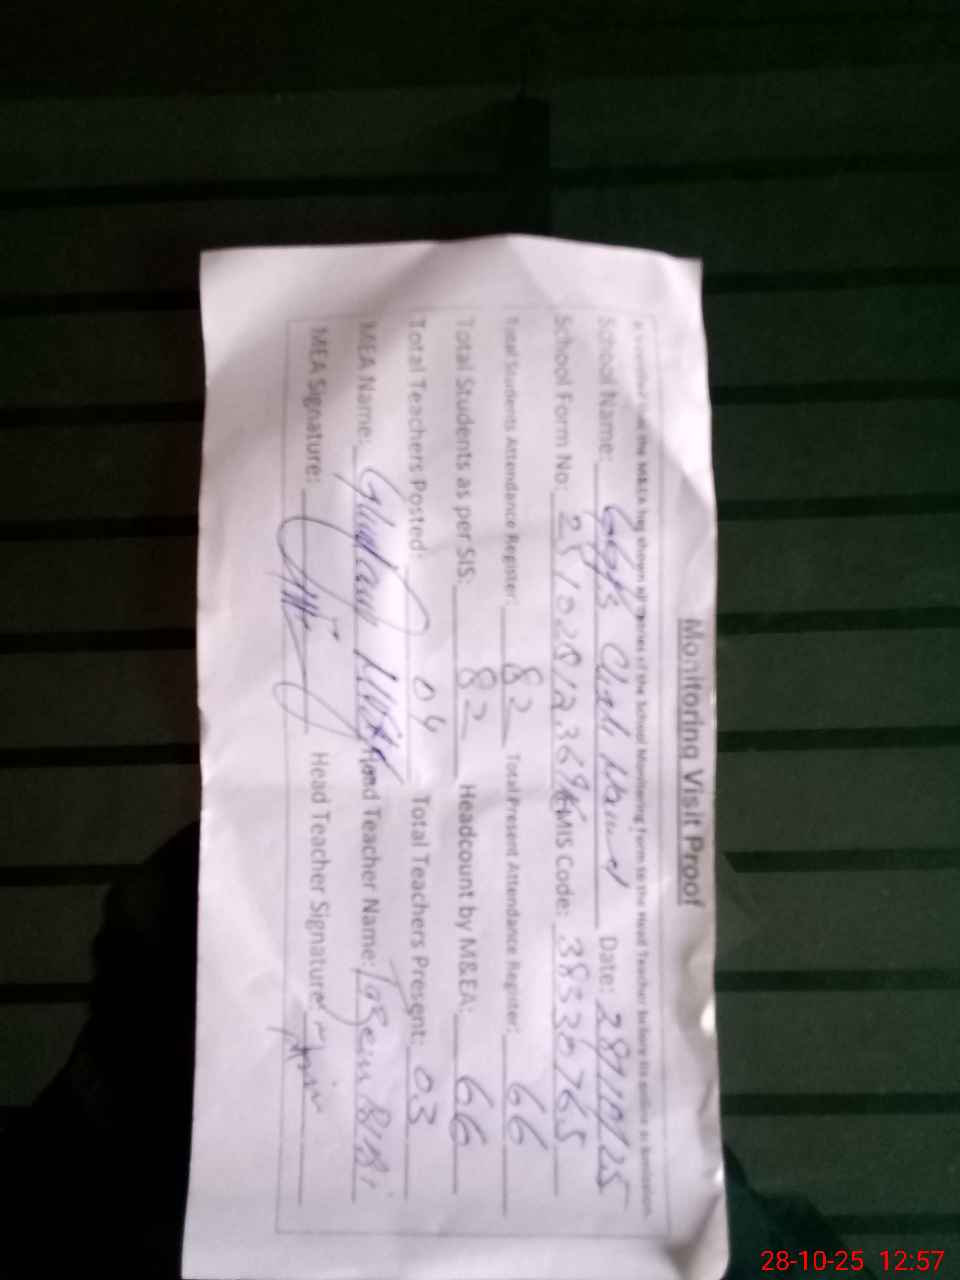 Monitoring Visit Proof
It is verified that the M&EA has shown all entries of the School Monitoring Form to the Head Teacher before its online submission.
School Name: GGPS Date: 28/10/25
School Form No: EMIS Code: 38330765
Total Students Attendance Register: 82 Total Present Attendance Register: 66
Total Students as per SIS: 82 Headcount by M&EA: 66
Total Teachers Posted: 04 Total Teachers Present: 03
MEA Name: Head Teacher Name: BiBi
MEA Signature: Head Teacher Signature:
28-10-25 12:57